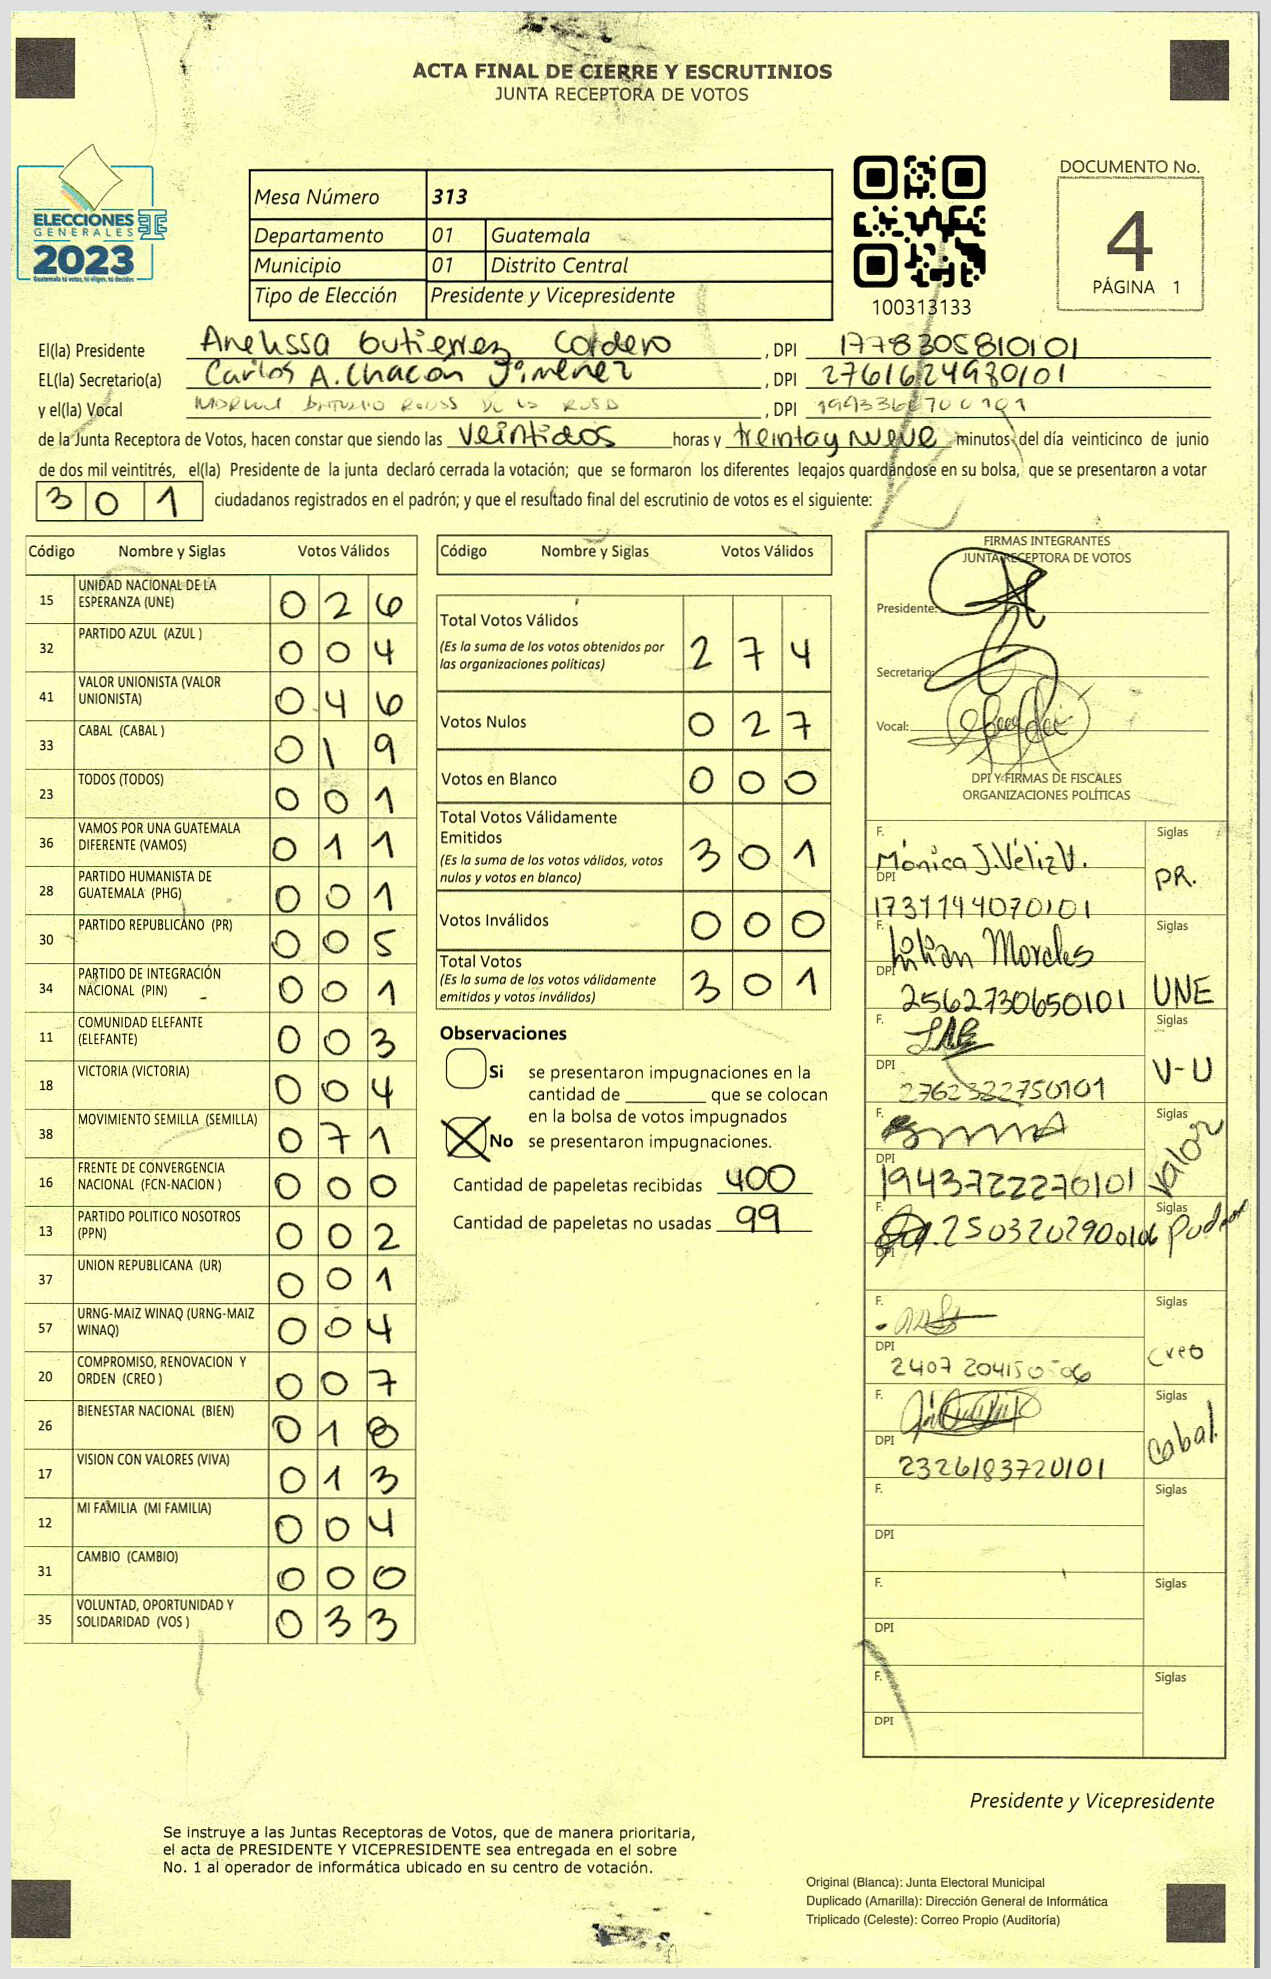 ACTA FINAL DE CIERRE Y ESCRUTINIOS
JUNTA RECEPTORA DE VOTOS
ELECCIONES
GENERALES
2023
Guatemala tú votas, tú eliges, tú decides
Mesa Número 313
Departamento 01 Guatemala
Municipio 01 Distrito Central
Tipo de Elección Presidente y Vicepresidente
100313133
DOCUMENTO No.
4
PÁGINA 1
El(la) Presidente Anelissa Gutierrez Cordero, DPI 1778305810101
EL(la) Secretario(a) Carlos A. Chacón Jimenez, DPI 2761624980101
y el(la) Vocal, DPI
de la Junta Receptora de Votos, hacen constar que siendo las veintidos horas y treinta y nueve minutos del día veinticinco de junio
de dos mil veintitrés, el(la) Presidente de la junta declaró cerrada la votación; que se formaron los diferentes legajos guardándose en su bolsa, que se presentaron a votar
301 ciudadanos registrados en el padrón; y que el resultado final del escrutinio de votos es el siguiente:
Código Nombre y Siglas Votos Válidos
15 UNIDAD NACIONAL DE LA ESPERANZA (UNE) 026
32 PARTIDO AZUL (AZUL ) 004
41 VALOR UNIONISTA (VALOR UNIONISTA) 046
33 CABAL (CABAL ) 019
23 TODOS (TODOS) 001
36 VAMOS POR UNA GUATEMALA DIFERENTE (VAMOS) 011
28 PARTIDO HUMANISTA DE GUATEMALA (PHG) 001
30 PARTIDO REPUBLICANO (PR) 005
34 PARTIDO DE INTEGRACIÓN NACIONAL (PIN) 001
11 COMUNIDAD ELEFANTE (ELEFANTE) 003
18 VICTORIA (VICTORIA) 004
38 MOVIMIENTO SEMILLA (SEMILLA) 071
16 FRENTE DE CONVERGENCIA NACIONAL (FCN-NACION ) 000
13 PARTIDO POLITICO NOSOTROS (PPN) 002
37 UNION REPUBLICANA (UR) 001
57 URNG-MAIZ WINAQ (URNG-MAIZ WINAQ) 004
20 COMPROMISO, RENOVACION Y ORDEN (CREO ) 007
26 BIENESTAR NACIONAL (BIEN) 018
17 VISION CON VALORES (VIVA) 013
12 MI FAMILIA (MI FAMILIA) 004
31 CAMBIO (CAMBIO) 000
35 VOLUNTAD, OPORTUNIDAD Y SOLIDARIDAD (VOS ) 033
Código Nombre y Siglas Votos Válidos
Total Votos Válidos 274
(Es la suma de los votos obtenidos por
las organizaciones políticas)
Votos Nulos 027
Votos en Blanco 000
Total Votos Válidamente
Emitidos 301
(Es la suma de los votos válidos, votos
nulos y votos en blanco)
Votos Inválidos 000
Total Votos 301
(Es la suma de los votos válidamente
emitidos y votos inválidos)
Observaciones
Si se presentaron impugnaciones en la
cantidad de ________ que se colocan
en la bolsa de votos impugnados
No se presentaron impugnaciones.
Cantidad de papeletas recibidas 400
Cantidad de papeletas no usadas 99
FIRMAS INTEGRANTES
JUNTA RECEPTORA DE VOTOS
Presidente:
Secretario:
Vocal:
DPI Y FIRMAS DE FISCALES
ORGANIZACIONES POLÍTICAS
F. Mónica J. Véliz V. Siglas PR.
DPI 1731144070101
F. Lilian Morales Siglas UNE
DPI 2562730650101
F. Siglas V-U
DPI 2762322750101
F. Siglas Valor
DPI 1943722270101
F. 2503202900106 Siglas
DPI
F. Siglas Creo
DPI 2407 20415 0506
F. Siglas Cabal.
DPI 2326183720101
F. Siglas
DPI
F. Siglas
DPI
F. Siglas
DPI
Presidente y Vicepresidente
Se instruye a las Juntas Receptoras de Votos, que de manera prioritaria,
el acta de PRESIDENTE Y VICEPRESIDENTE sea entregada en el sobre
No. 1 al operador de informática ubicado en su centro de votación.
Original (Blanca): Junta Electoral Municipal
Duplicado (Amarilla): Dirección General de Informática
Triplicado (Celeste): Correo Propio (Auditoría)